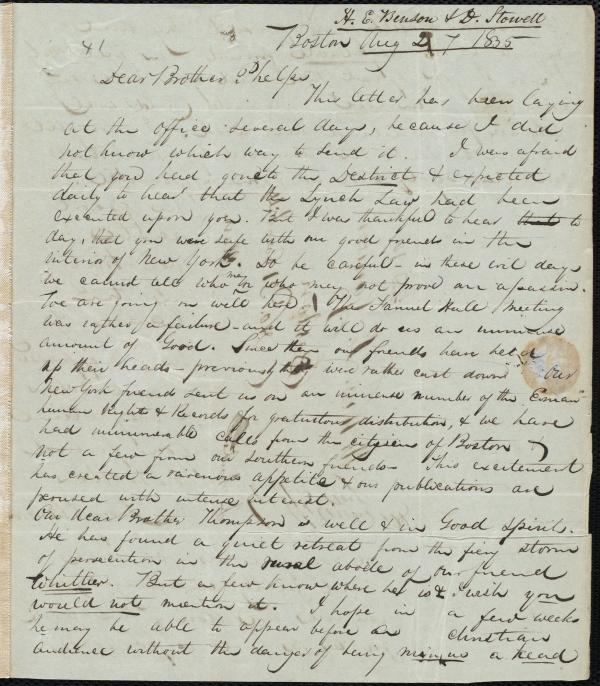 H. E. Benson & D. Stowell
41
Boston Aug 27 1835
Dear Brother Phelps
This letter has been laying
at the office several days, because I did
not know which way to send it. I was afraid
that you had gone to the District & expected
daily to hear that the Lynch Law had been
executed upon you. But I was thankful to hear that to
day, that you were safe with our good friends in the
interior of New York. Do be careful - in these evil days
we cannot tell who may or who may not prove an assassin.
We are going on well here. The Fanuel Hall Meeting
was rather a failure - and it will do us an immense
amount of Good. Since then our friends have held
up their heads - previously they were rather cast down. Our
New York friends sent us on an immense number of the Eman
human Rights & Records for gratuitous distribution, & we have
had innumerable calls from the citizens of Boston &
not a few from our southern friends - This excitement
has created a ravenous appetite & our publications are
perused with intense interest.
Our dear Brother Thompson is well & in Good spirits.
He has found a quiet retreat from the fiery storm
of persecution in the rural abode of our friend
Whittier. But a few know where he is & I wish you
would not mention it. I hope in a few weeks
he may be able to appear before a christian
audience without the danger of being minus a head